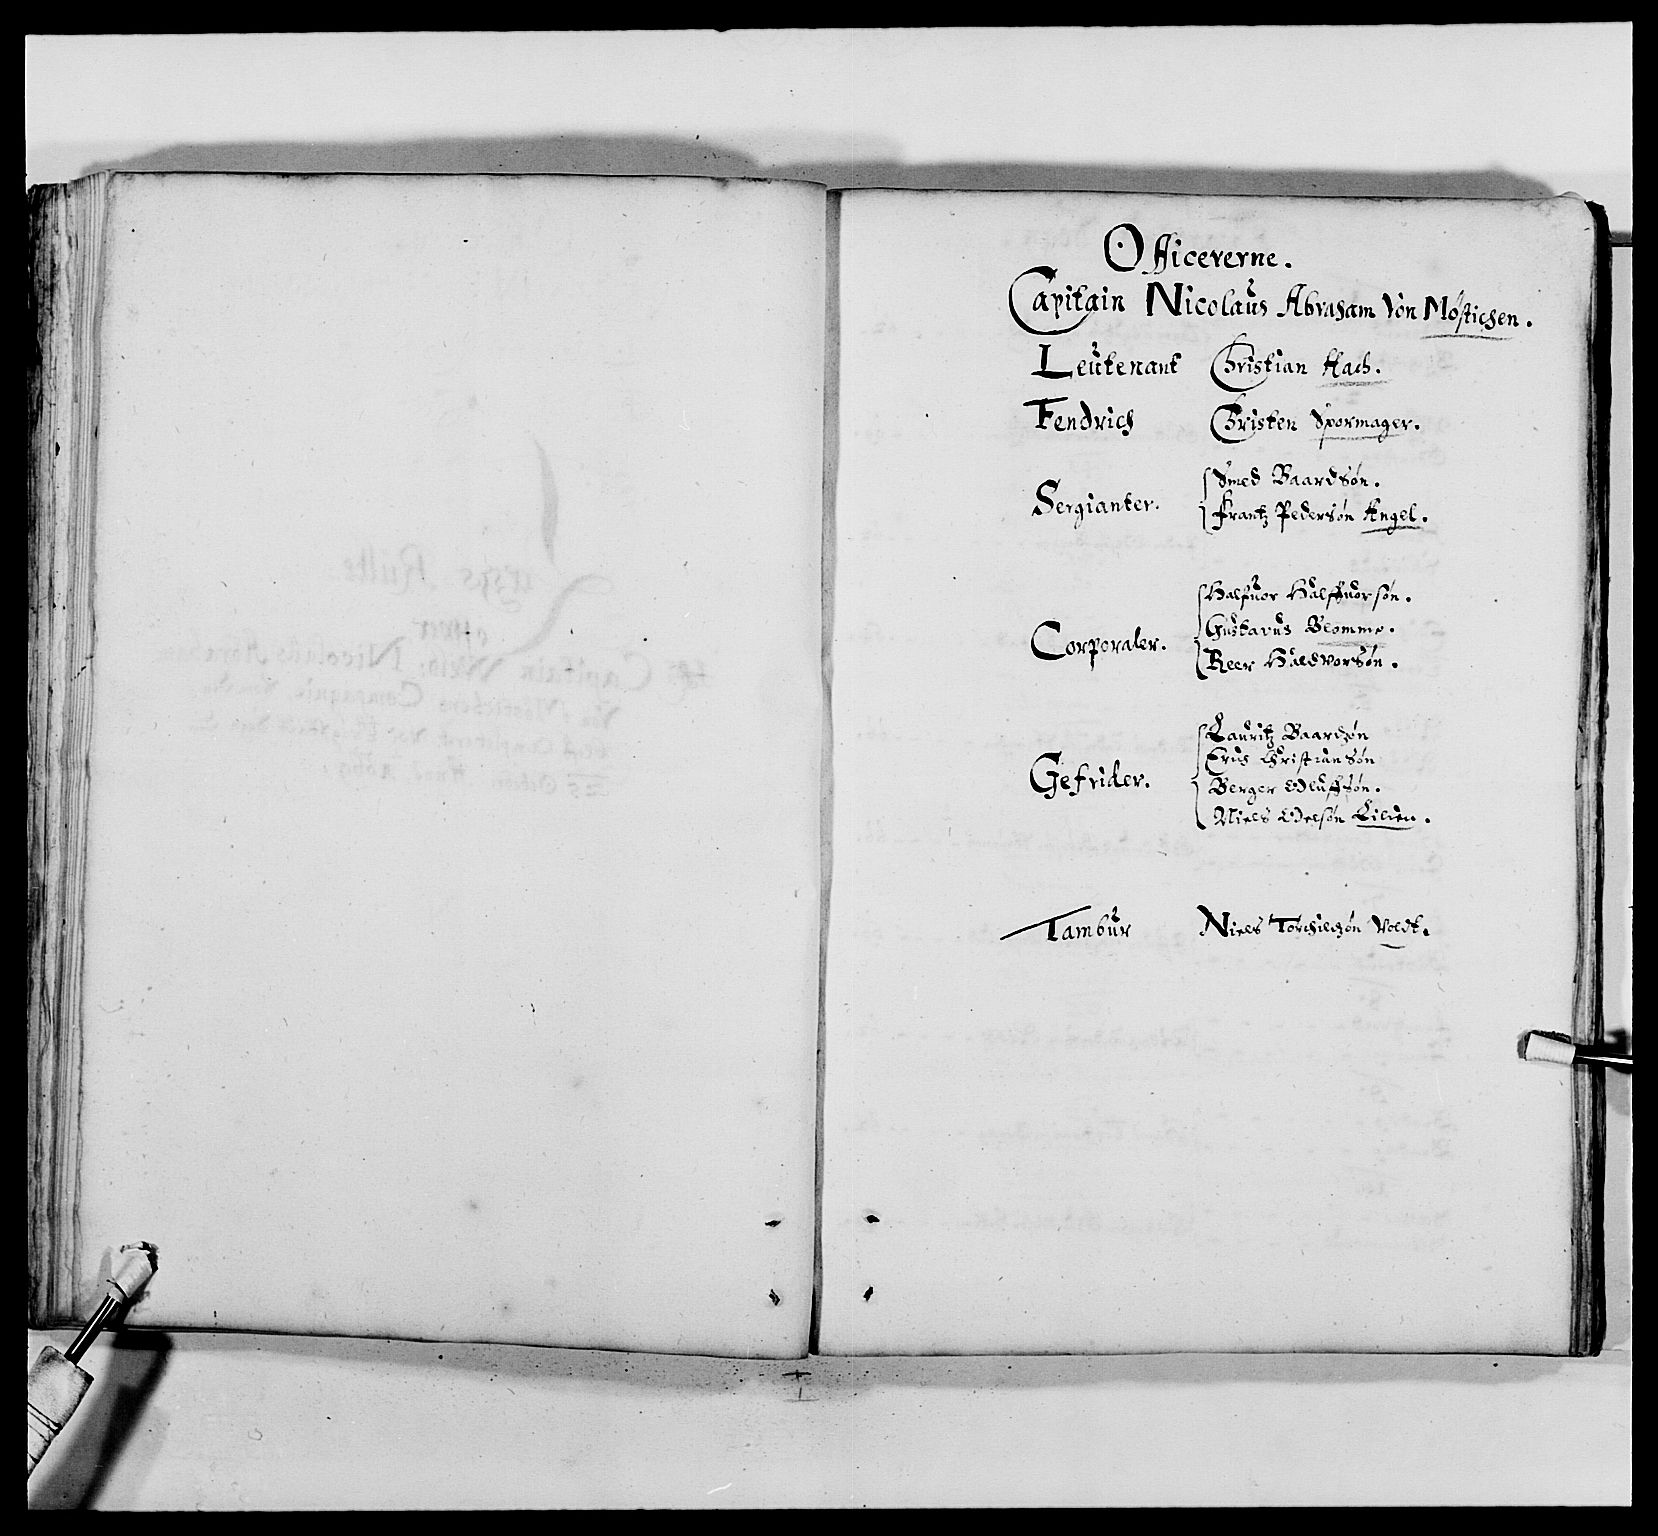 Officererne.
Capitain Nicolaus Abraham Von Møstichen.
Leutenant Christian Hach.
Fendrich Christen Spormager.
Sergianter. Smed Baardsøn.
Frantz Pedersøn Angel.
Corporaler. Halfuor Halffuorsøn.
Gustavus Blomme.
Reer Haldvorsøn.
Gefrider. Lauritz Baardzøn
Erich Christiansøn
Berger Oluffsøn.
Niels Olsøn Lilien.
Tambur Niels Torchildzøn Voldt.